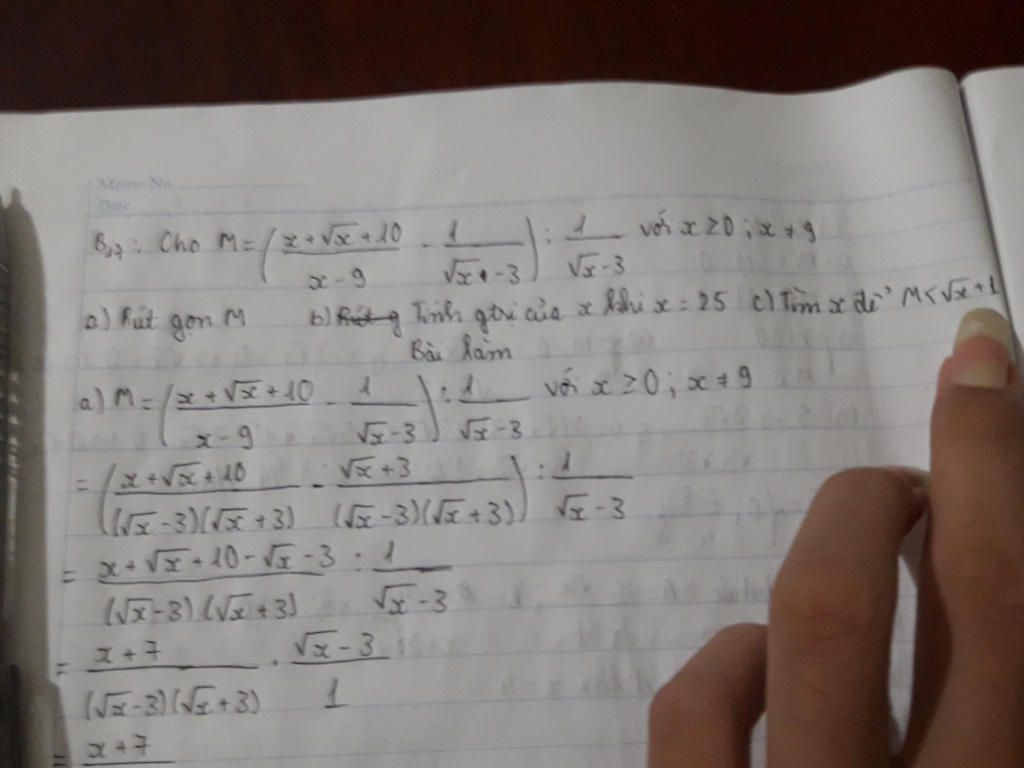 Memo No.
Date
B17: Cho M = ( (x+√x+10)/(x-9) - 1/(√x-3) ) : 1/(√x-3) với x ≥ 0 ; x ≠ 9
a) Rút gọn M b) Rút g Tính gtrị của x khi x = 25 c) Tìm x để M < √x + 1
Bài làm
a) M = ( (x+√x+10)/(x-9) - 1/(√x-3) ) : 1/(√x-3) với x ≥ 0 ; x ≠ 9
= ( (x+√x+10)/((√x-3)(√x+3)) - (√x+3)/((√x-3)(√x+3)) ) : 1/(√x-3)
= (x+√x+10-√x-3)/((√x-3)(√x+3)) : 1/(√x-3)
= (x+7)/((√x-3)(√x+3)) . (√x-3)/1
= x+7